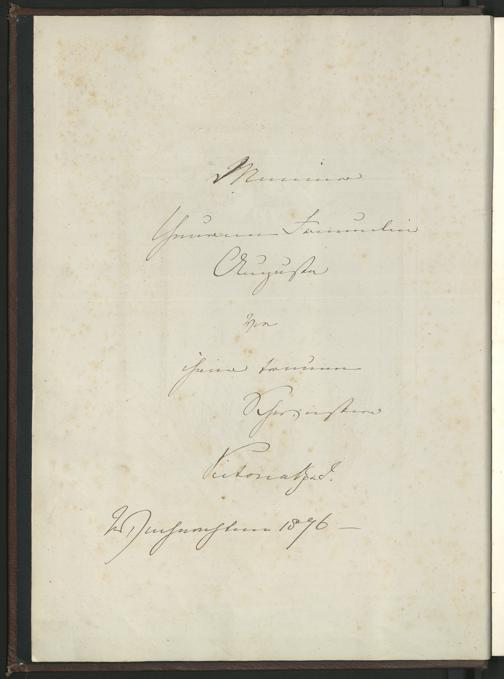 Meiner
theuren Freundin
Auguste
von
ihrer treuen
Schwester
Victoria
Weihnachten 1876 –